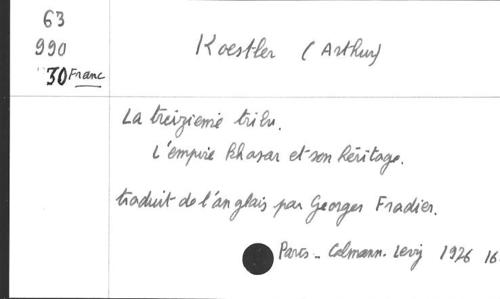 63
990
30 Franc
Koestler (Arthur)
La treizieme tribu.
L'empire Khazar et son héritage.
traduit de l'anglais par Georges Fradier.
Paris - Calmann. Levy 1926 16